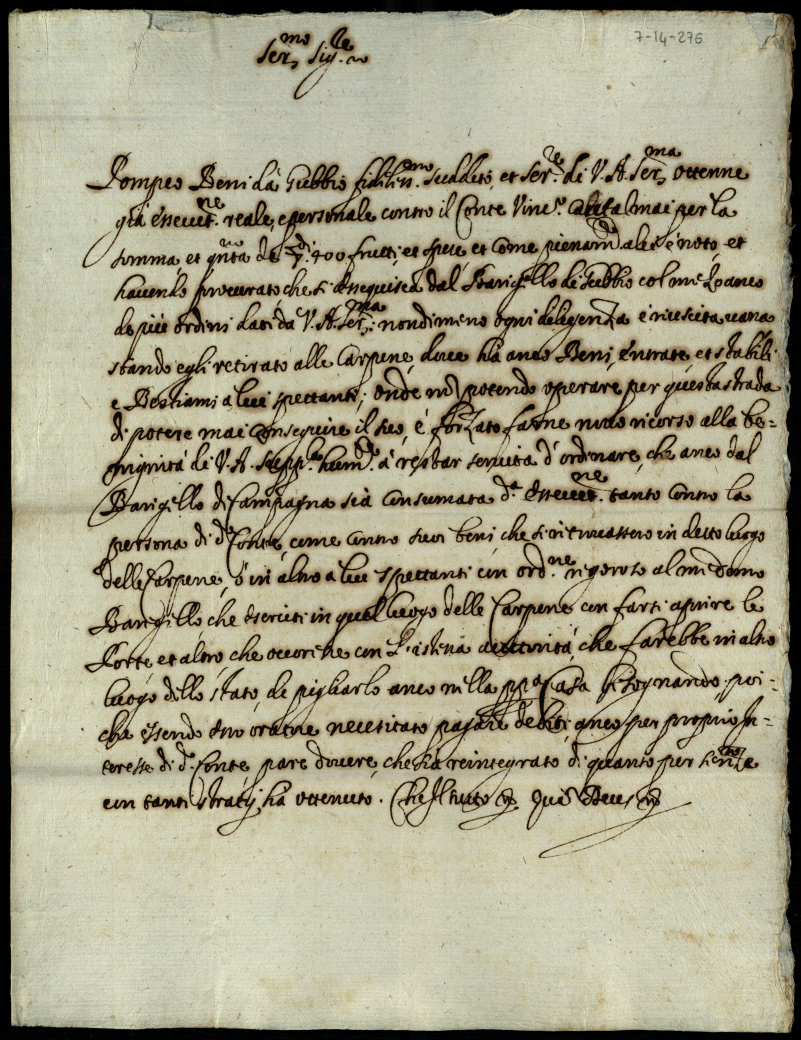 7-14-276
Ser.mo Sig.re
Pompeo Beni da Gubbio fidiliss.mo suddito, et ser.re di V. A. Ser.ma ottenne
già essecut.ne reale, e personale contro il Conte Vinc.o mai per la
somma, et q.ntà de 400 frutti, et spese et come pienam.te a lei è noto, et
havendo procurato che si essequisca dal Barigello di Gubbio col mezo anco
de più ordini dati da V. A. Ser.ma: nondimeno ogni diligenza è riuscita vana
stando egli retirato alle Carpene, dove ha anco Beni, entrate, et stabili
e Bestiami a lui spettanti; onde non potendo operare per questa strada
di potere mai conseguire il suo, è forzato farne novo ricorso alla be=
gnignità di V. A. supp.la hum.te à restar servita d'ordinare, che anco dal
Barigello di Campagna sia consumata d.a essecut.ne tanto contro la
persona di d.o Conte, come contro suoi beni che si ritrovassero in detto luogo
delle Carpene, ò in altro a lui spettanti con ord.ne rigoroso al med.omo
Barigello, che esserciti in quel luogo delle Carpene con farsi aprire le
Porte et altro che occorrere con l'istessa auttorità, che farebbe in altro
luogo dello stato, de pigliarlo anco nella pp.a Casa bisognando, poi=
che essendo esso oratore necessitato pagare debiti anco per proprio in=
teresse di d.o Conte pare dovere, che sia reintegrato di quanto per senza
con tanti stratij ha ottenuto. Che il tutto Quas Deus